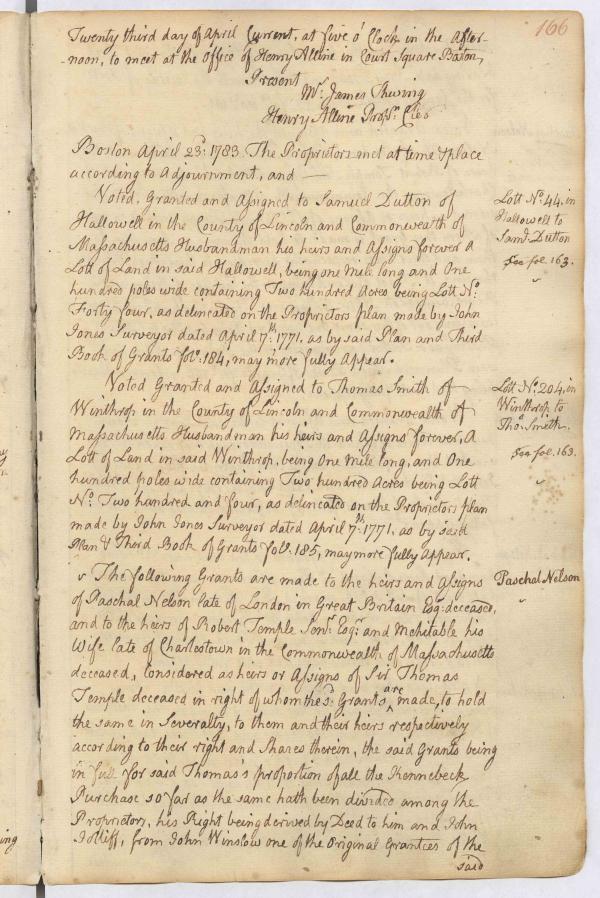 166
Twenty third day of April Current, at five o'Clock in the After-
noon, to meet at the office of Henry Alline in Court Square Boston,
Present
Mr. James Thwing
Henry Alline Propsrs. Cler
Boston April 23d: 1783 The Proprietors met at time & place
according to Adjournment, and —
Voted, Granted and Assigned to Samuel Dutton of
Hallowell in the County of Lincoln and Commonwealth of
Massachusetts Husbandman his heirs and Assigns forever A
Lott of Land in said Hallowell, being one Mile long and One
hundred poles wide containing Two hundred Acres being Lott No.
Forty four, as delineated on the Proprietors plan made by John
Jones Surveyor dated April 7th: 1771. as by said Plan and Third
Book of Grants folo. 184, may more fully Appear.
Lott No. 44. in
Hallowell to
Saml. Dutton
See fol. 163.
Voted Granted and Assigned to Thomas Smith of
Winthrop in the County of Lincoln and Commonwealth of
Massachusetts Husbandman his heirs and Assigns forever, A
Lott of Land in said Winthrop, being One Mile long, and One
hundred poles wide containing Two hundred Acres being Lott
No. Two hundred and four, as delineated on the Proprietors plan
made by John Jones Surveyor dated April 7th: 1771. as by said
Plan & Third Book of Grants folo. 185, may more fully Appear.
Lott No. 204, in
Winthrop to
Thos. Smith.
See fol. 163.
The following Grants are made to the heirs and Assigns
of Paschal Nelson late of London in Great Britain Esq: deceased,
and to the heirs of Robert Temple Senr. Esqr. and Mehitable his
Wife late of Charlestown in the Commonwealth of Massachusetts
deceased, Considered as heirs or Assigns of Sir Thomas
Temple deceased in right of whom the sd. Grants are made, to hold
the same in Severalty, to them and their heirs respectively
according to their right and Shares therein, the said Grants being
in full for said Thomas's proportion of all the Kennebeck
Purchase so far as the same hath been divided among the
Proprietors, his Right being derived by Deed to him and John
Jolliff, from John Winslow one of the Original Grantees of the
said
Paschal Nelson